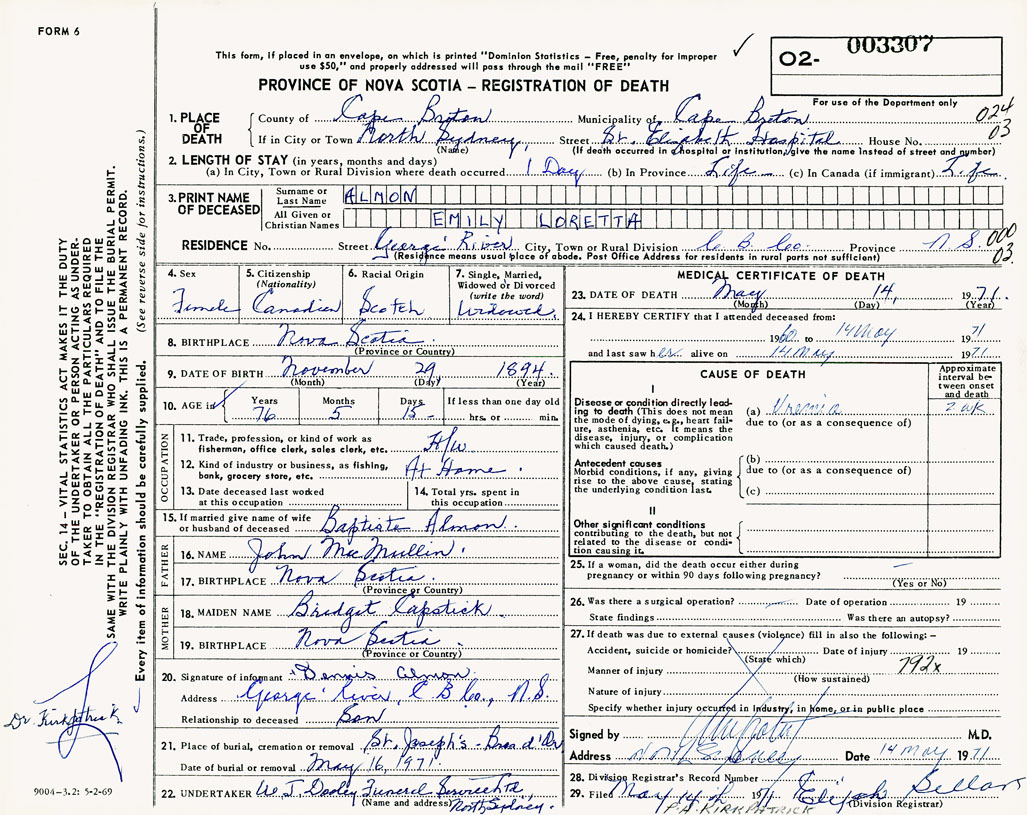 FORM 6
This form, if placed in an envelope, on which is printed "Dominion Statistics - Free, penalty for improper
use $50," and properly addressed will pass through the mail "FREE"
PROVINCE OF NOVA SCOTIA – REGISTRATION OF DEATH
O2- 003307
For use of the Department only
024
03
1. PLACE OF DEATH County of Cape Breton Municipality of Cape Breton
If in City or Town North Sydney, Street St. Elizabeth Hospital House No.
(Name) (If death occurred in a hospital or institution, give the name instead of street and number)
2. LENGTH OF STAY (in years, months and days)
(a) In City, Town or Rural Division where death occurred 1 Day (b) In Province Life (c) In Canada (if immigrant) Life.
3. PRINT NAME OF DECEASED Surname or Last Name ALMON
All Given or Christian Names EMILY LORETTA
RESIDENCE No. Street George' River City, Town or Rural Division C. B. Co. Province N S. 000
03.
(Residence means usual place of abode. Post Office Address for residents in rural parts not sufficient)
4. Sex Female
5. Citizenship (Nationality) Canadian
6. Racial Origin Scotch
7. Single, Married, Widowed or Divorced (write the word) Widowed.
8. BIRTHPLACE Nova Scotia.
(Province or Country)
9. DATE OF BIRTH November 29 1894.
(Month) (Day) (Year)
10. AGE is Years 76 Months 5 Days 15 If less than one day old
hrs. or min.
OCCUPATION
11. Trade, profession, or kind of work as fisherman, office clerk, sales clerk, etc. H/w
12. Kind of industry or business, as fishing, bank, grocery store, etc. At Home.
13. Date deceased last worked at this occupation
14. Total yrs. spent in this occupation
15. If married give name of wife or husband of deceased Baptiste Almon.
FATHER
16. NAME John MacMullin.
17. BIRTHPLACE Nova Scotia.
(Province or Country)
MOTHER
18. MAIDEN NAME Bridget Capstick.
19. BIRTHPLACE Nova Scotia.
(Province or Country)
20. Signature of informant Dennis Almon
Address George' River, C B Co., N.S.
Relationship to deceased Son
21. Place of burial, cremation or removal St. Joseph's - Bras d'Or
Date of burial or removal May 16, 1971
22. UNDERTAKER W. J. Dooley Funeral Service Ltd,
(Name and address) North Sydney.
MEDICAL CERTIFICATE OF DEATH
23. DATE OF DEATH May 14, 1971.
(Month) (Day) (Year)
24. I HEREBY CERTIFY that I attended deceased from:
1960 to 14 May 1971
and last saw her alive on 14 May 1971
CAUSE OF DEATH
Approximate interval between onset and death
I
Disease or condition directly leading to death (This does not mean the mode of dying, e.g., heart failure, asthenia, etc. It means the disease, injury, or complication which caused death.)
(a) Uremia 2 wk
due to (or as a consequence of)
Antecedent causes
Morbid conditions, if any, giving rise to the above cause, stating the underlying condition last.
(b)
due to (or as a consequence of)
(c)
II
Other significant conditions contributing to the death, but not related to the disease or condition causing it.
25. If a woman, did the death occur either during pregnancy or within 90 days following pregnancy?
(Yes or No)
26. Was there a surgical operation? Date of operation 19
State findings Was there an autopsy?
27. If death was due to external causes (violence) fill in also the following: –
Accident, suicide or homicide? Date of injury 19
(State which)
Manner of injury 792x
(How sustained)
Nature of injury
Specify whether injury occurred in industry, in home, or in public place
Signed by M.D.
Address North Sydney Date 14 May 1971
28. Division Registrar's Record Number
29. Filed May 14th 1971 Elijah
(Division Registrar)
P.A. KIRKPATRICK
SEC. 14 – VITAL STATISTICS ACT MAKES IT THE DUTY
OF THE UNDERTAKER OR PERSON ACTING AS UNDER-
TAKER TO OBTAIN ALL THE PARTICULARS REQUIRED
IN THE "REGISTRATION OF DEATH" AND TO FILE THE
SAME WITH THE DIVISION REGISTRAR WHO SHALL ISSUE THE BURIAL PERMIT.
WRITE PLAINLY WITH UNFADING INK. THIS IS A PERMANENT RECORD.
Every item of information should be carefully supplied. (See reverse side for instructions.)
Dr. Kirkpatrick
9004-3.2: 5-2-69